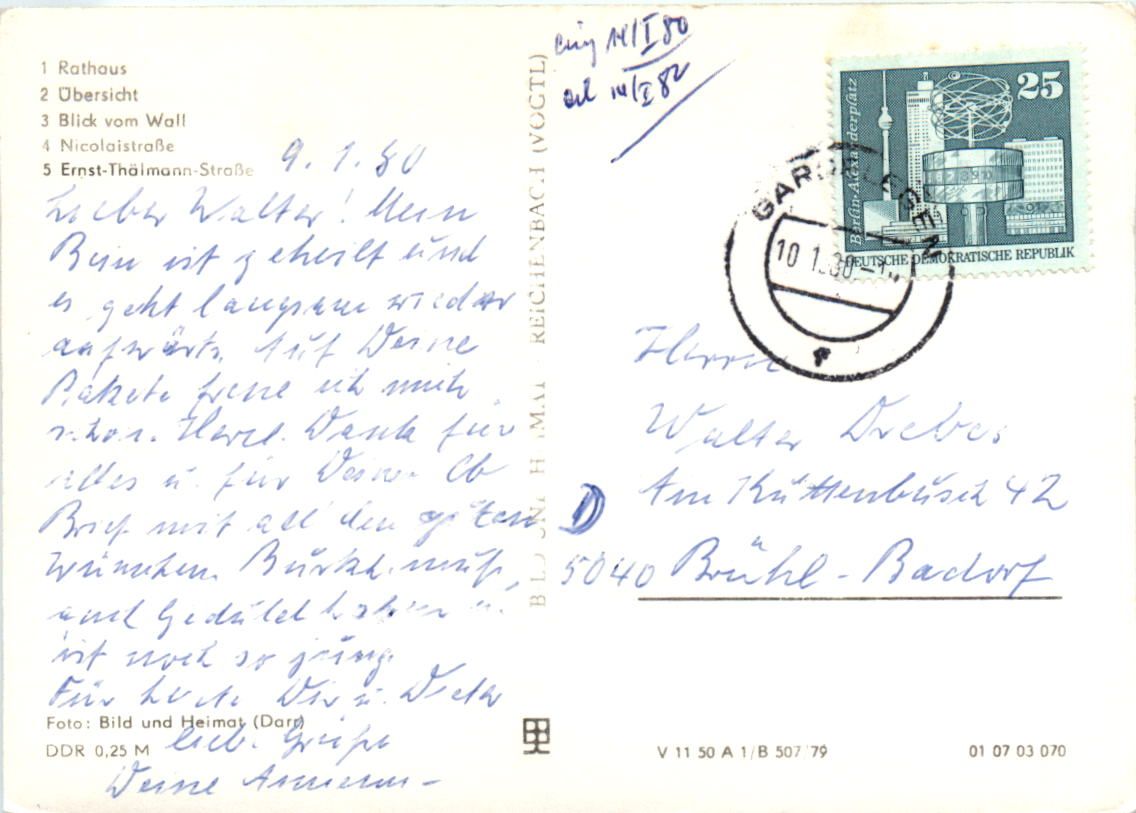 1 Rathaus
2 Übersicht
3 Blick vom Wall
4 Nicolaistraße
5 Ernst-Thälmann-Straße
9.1.80
Lieber Walter! Mein
Bein ist geheilt und
es geht langsam wieder
aufwärts. Auf Deine
Pakete freue ich mich
schon. Herzl. Dank für
alles u. für Deinen lb
Brief mit all den guten
Wünschen. Burkh. muß
auch Geduld haben u.
ist noch so jung.
Für heute Dir u.
lieb. Grüße
Deine
Foto: Bild und Heimat (Darr)
DDR 0,25 M
BILD UND HEIMAT REICHENBACH (VOGTL)
eing 14/I 80
14/I 82
Berlin-Alexanderplatz
25
DEUTSCHE DEMOKRATISCHE REPUBLIK
GARDELEGEN
10.1.80
Herrn
Walter Drebes
Am Küttenbusch 42
D
5040 Brühl-Badorf
V 11 50 A 1/B 507/79
01 07 03 070